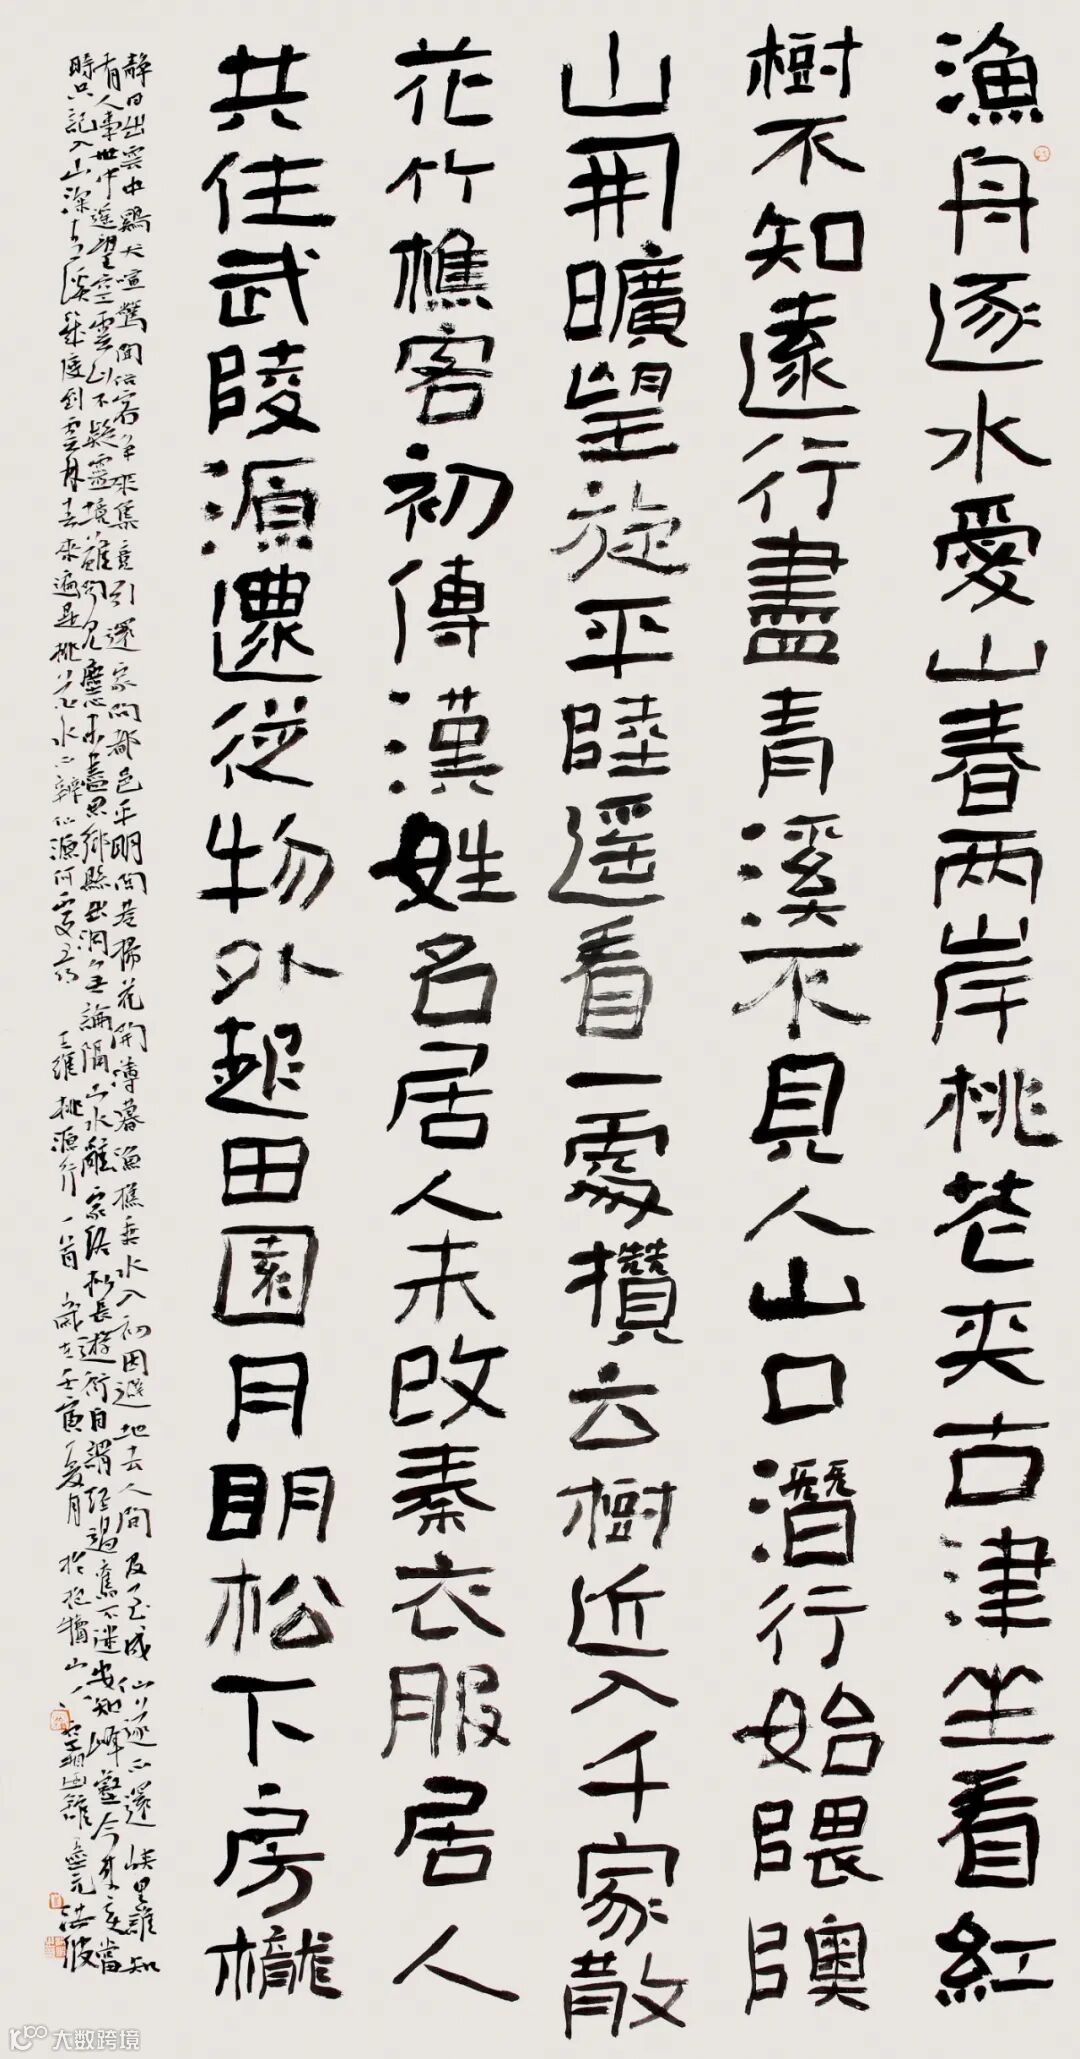 漁舟逐水愛山春两岸桃花夾古津坐看紅
樹不知遠行盡青溪不見人山口潛行始隈隩
山開曠望旋平陸遥看一處攢云樹近入千家散
花竹樵客初傳漢姓名居人未改秦衣服居人
共住武陵源還從物外起田園月明松下房櫳
靜日出雲中鷄犬喧驚聞俗客争來集競引還家問都邑平明閭巷掃花開薄暮漁樵乘水入初因避地去人間及至成仙遂不還峽里誰知
有人事世中遥望空雲山不疑靈境難聞見塵心未盡思鄉縣出洞無論隔山水辭家終擬長遊衍自謂經過舊不迷安知峰壑今來變當
時只記入山深青溪幾度到雲林春來遍是桃花水不辨仙源何處尋 王維桃源行一首 歲在壬寅夏月於抱犢山 洪波
大数跨境